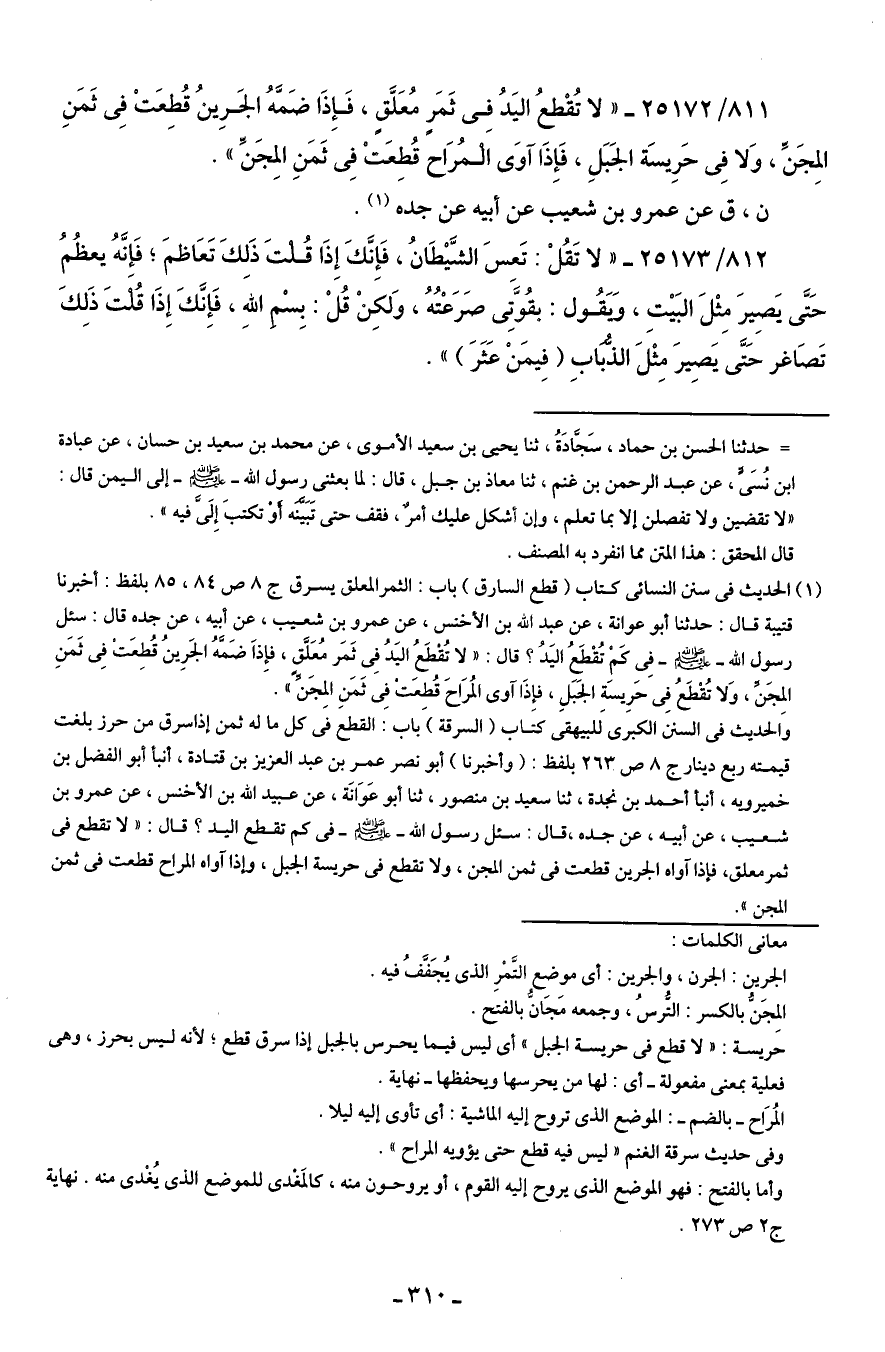 ٨١١/ ٢٥١٧٢ ـ « لا تُقْطعُ اليَدُ فـى ثَمَرٍ مُعَلَّقٍ ، فَـإِذَا ضَمَّهُ الجَـرِينُ قُطِعَتْ فِى ثَمَنِ
المِجَنِّ ، وَلا فِى حَرِيسَةِ الجَبَلِ ، فَإِذَا آوَى الْـمُرَاحِ قُطِعَتْ فِى ثَمَنِ المِجَنِّ » .
ن ، ق عن عمرو بن شعيب عن أبيه عن جده (١) .
٨١٢/ ٢٥١٧٣ ـ « لا تَقُلْ : تَعِسَ الشَّيْطَانُ ، فَإِنَّكَ إِذَا قُـلْتَ ذَلِكَ تَعَاظمَ ؛ فَإِنَّهُ يعظُمُ
حَتَّى يَصِيرَ مِثْلَ البَيْتِ ، وَيَقُـول : بِقُوَّتِى صَرَعْتُهُ ، ولَكِنْ قُلْ : بِسْمِ اللهِ ، فَإِنَّكَ إِذَا قُلْتَ ذَلِكَ
تَصَاغر حَتَّى يَصِيرَ مِثْلَ الذُّبَابِ ( فِيمَنْ عَثَرَ ) » .
= حدثنا الحسن بن حماد ، سَجَّادَةُ ، ثنا يحيى بن سعيد الأمـوى ، عن محمد بن سعيد بن حسان ، عن عبادة
ابن نُسَىٍّ ، عن عبـد الرحمن بن غنم ، ثنا معاذ بن جـبل ، قال : لما بعثنى رسول الله ـ ﷺ ـ إلى اليـمن قال :
«لا تقضين ولا تفصلن إلا بما تعلم ، وإن أشكل عليك أمرٌ ، فقف حتى تَبَيَّنَه أَوْ تكتبَ إِلَىَّ فيه » .
قال المحقق : هذا المتن مما انفرد به المصنف .
(١) الحديث فى سنن النسائى كـتاب ( قطع السارق ) باب : الثمر المعلق يسـرق ج ٨ ص ٨٤ ، ٨٥ بلفظ : أخبرنا
قتيبة قـال : حدثنا أبو عوانة ، عن عبد الله بن الأخنس ، عن عمرو بن شعـيب ، عن أبيه ، عن جده قال : سئل
رسول الله ـ ﷺ ـ فى كَمْ تُقْطَعُ اليَدُ ؟ قال : « لا تُقْطَعُ اليَدُ فى ثَمَر مُعَلَّقٍ ، فإذَا ضَمَّهُ الجَرِينُ قُطعَتْ فى ثَمَنِ
المِجَنِّ ، وَلا تُقْطَعُ فى حَرِيسَةِ الجَبَلِ ، فإذَا آوى المُرَاحَ قُطعَتْ فى ثَمَنِ المِجَنِّ » .
والحديث فى السنن الكبرى للبيهقى كتـاب ( السرقة ) باب : القطع فى كل ما له ثمن إذا سرق من حرز بلغت
قيمـته ربع دينار ج ٨ ص ٢٦٣ بلفظ : ( وأخبرنا ) أبو نصر عمـر بن عبد العزيز بن قتـادة ، أنبأ أبو الفضل بن
خميرويه ، أنبأ أحـمد بن نجدة ، ثنا سعيد بن منصور ، ثنا أبو عَوَانَة ، عن عـبيد الله بن الأخنس ، عن عمرو بن
شـعـيب ، عن أبيـه ، عن جـده ،قـال : سـئل رسـول الله ـ ﷺ ـ فى كم تقـطع اليـد ؟ قـال : « لا تقطع فى
ثمر معلق، فإذا آواه الجرين قطعت فى ثمن المجن ، ولا تقطع فى حريسة الجبل ، وإذا آواه المراح قطعت فى ثمن
المجن ».
معانى الكلمات :
الجرين : الجرن ، والجرين : أى موضع التَّمْرِ الذى يُجَفَّفُ فيه .
المِجَنُّ بالكسر : التُّرسُ ، وجمعه مَجَانُّ بالفتح .
حريسـة : « لا قطع فى حريسـة الجبل » أى ليس فيـما يحـرس بالجبل إذا سرق قطع ؛ لأنه لـيس بحرز ، وهى
فعلية بمعنى مفعولة ـ أى : لها من يحرسها ويحفظها ـ نهاية .
المُرَاح ـ بالضم ـ : الموضع الذى تروح إليه الماشية : أى تأوى إليه ليلا .
وفى حديث سرقة الغنم « ليس فيه قطع حتى يؤويه المراح » .
وأما بالفتح : فهو الموضع الذى يروح إليه القوم ، أو يروحـون منه ، كالمَغْدى للموضع الذى يُغْدى منه . نهاية
ج٢ ص ٢٧٣ .
ـ ٣١٠ ـ